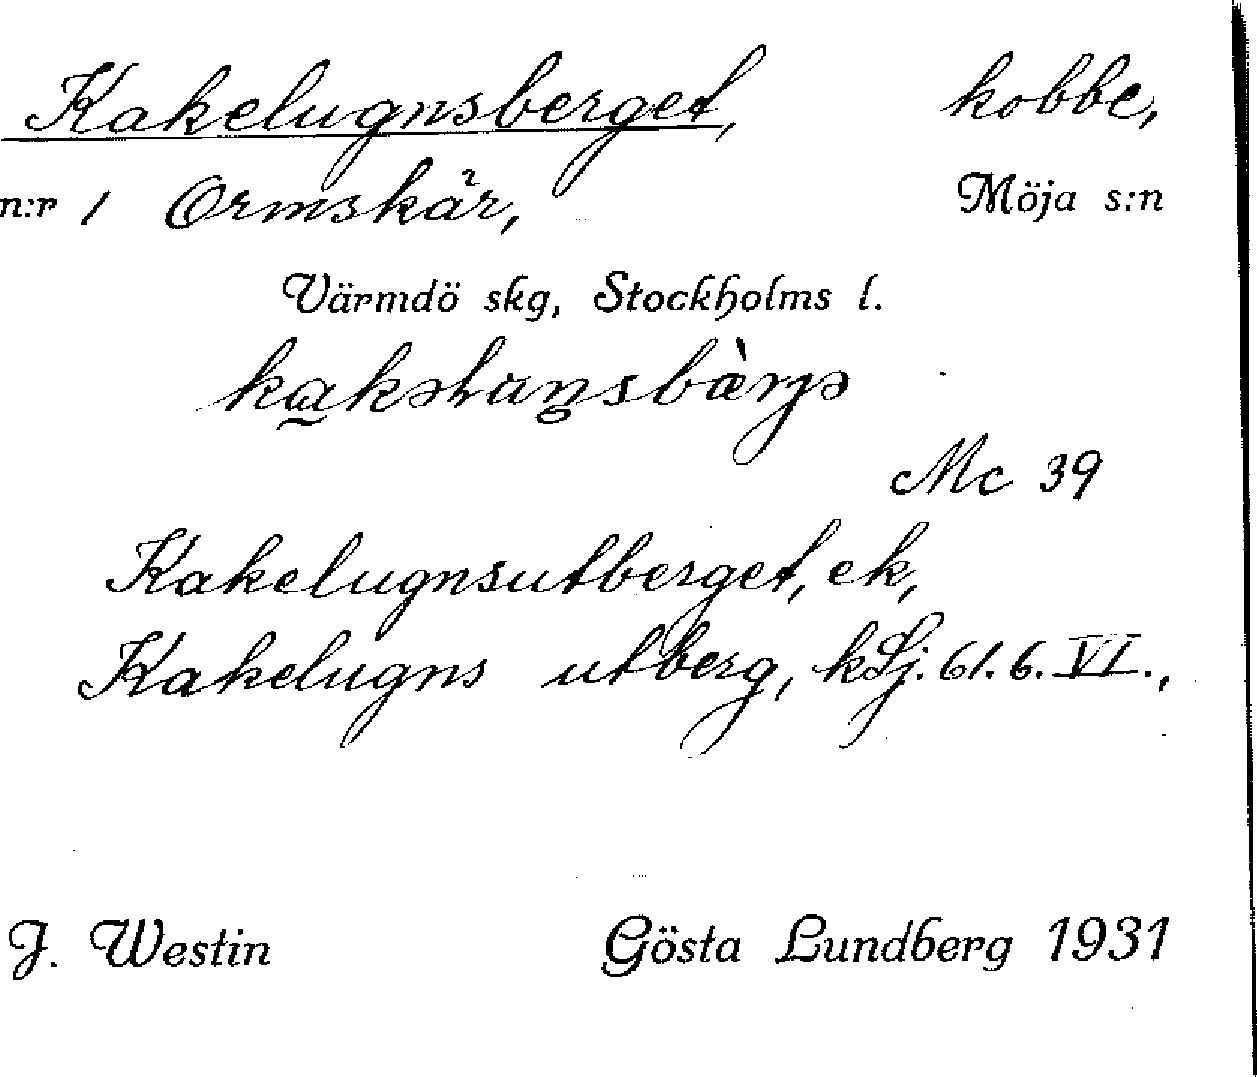 Kakelugnsberget, kobbe,
n:r 1 Ormskär, Möja s:n
Värmdö skg, Stockholms l.
Mc 39
Kakelugnsutberget, ek,
Kakelugns utberg, kLj. 61. 6. VI.,
J. Westin Gösta Lundberg 1931